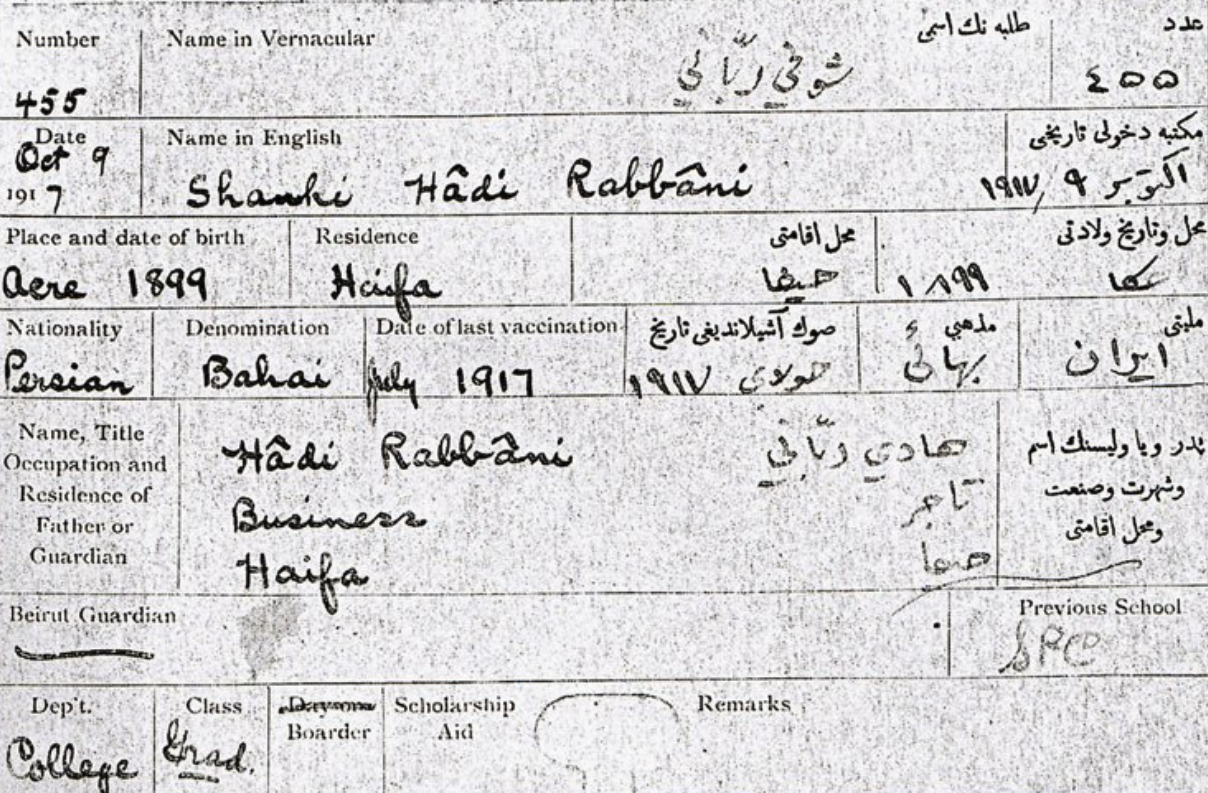 Number
455
Name in Vernacular
شوقي ربّاني
طلبه نك اسمى
عدد
٤٥٥
Date
Oct 9
1917
Name in English
Shauki Hâdi Rabbâni
مكتبه دخولى تاريخى
اكتوبر ٩ ١٩١٧
Place and date of birth
Acre 1899
Residence
Haifa
محل اقامتى
حيفا
محل وتاريخ ولادتى
عكا ١٨٩٩
Nationality
Persian
Denomination
Bahai
Date of last vaccination
July 1917
صوك آشيلانديغى تاريخ
جولاى ١٩١٧
مذهبى
بهائي
مليتى
ايران
Name, Title
Occupation and
Residence of
Father or
Guardian
Hâdi Rabbâni
Business
Haifa
هادي ربّاني
تاجر
حيفا
پدر ويا وليسنك اسم
وشهرت وصنعت
ومحل اقامتى
Beirut Guardian
Previous School
SPC
Dep't.
College
Class
Grad.
Boarder
Scholarship
Aid
Remarks